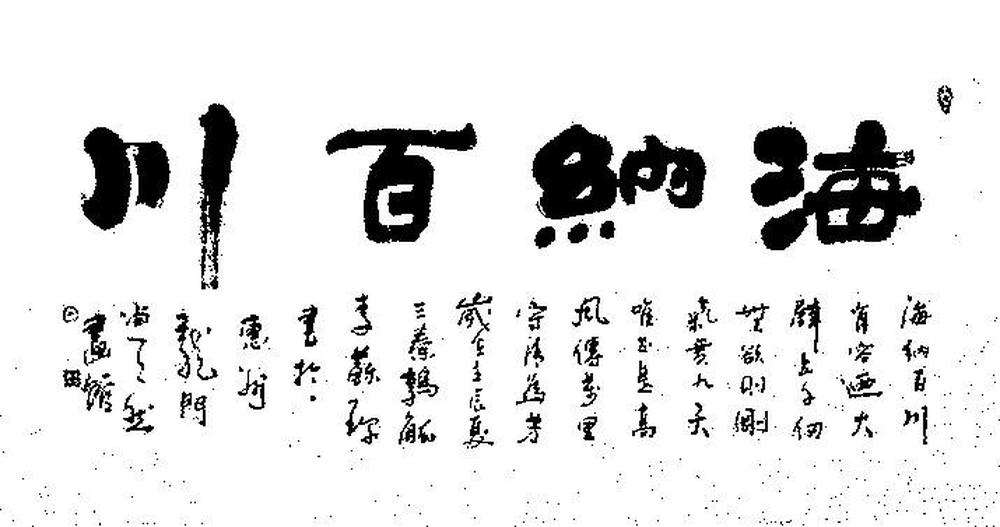 海納百川
海納百川
有容迺大
壁立千仞
無欲則剛
氣貫九天
唯我是高
風傳萬里
守清為芳
歲在壬辰夏
三秦鶉觚
李蘇珲
書於
惠州
龍門
尚天然
畫館